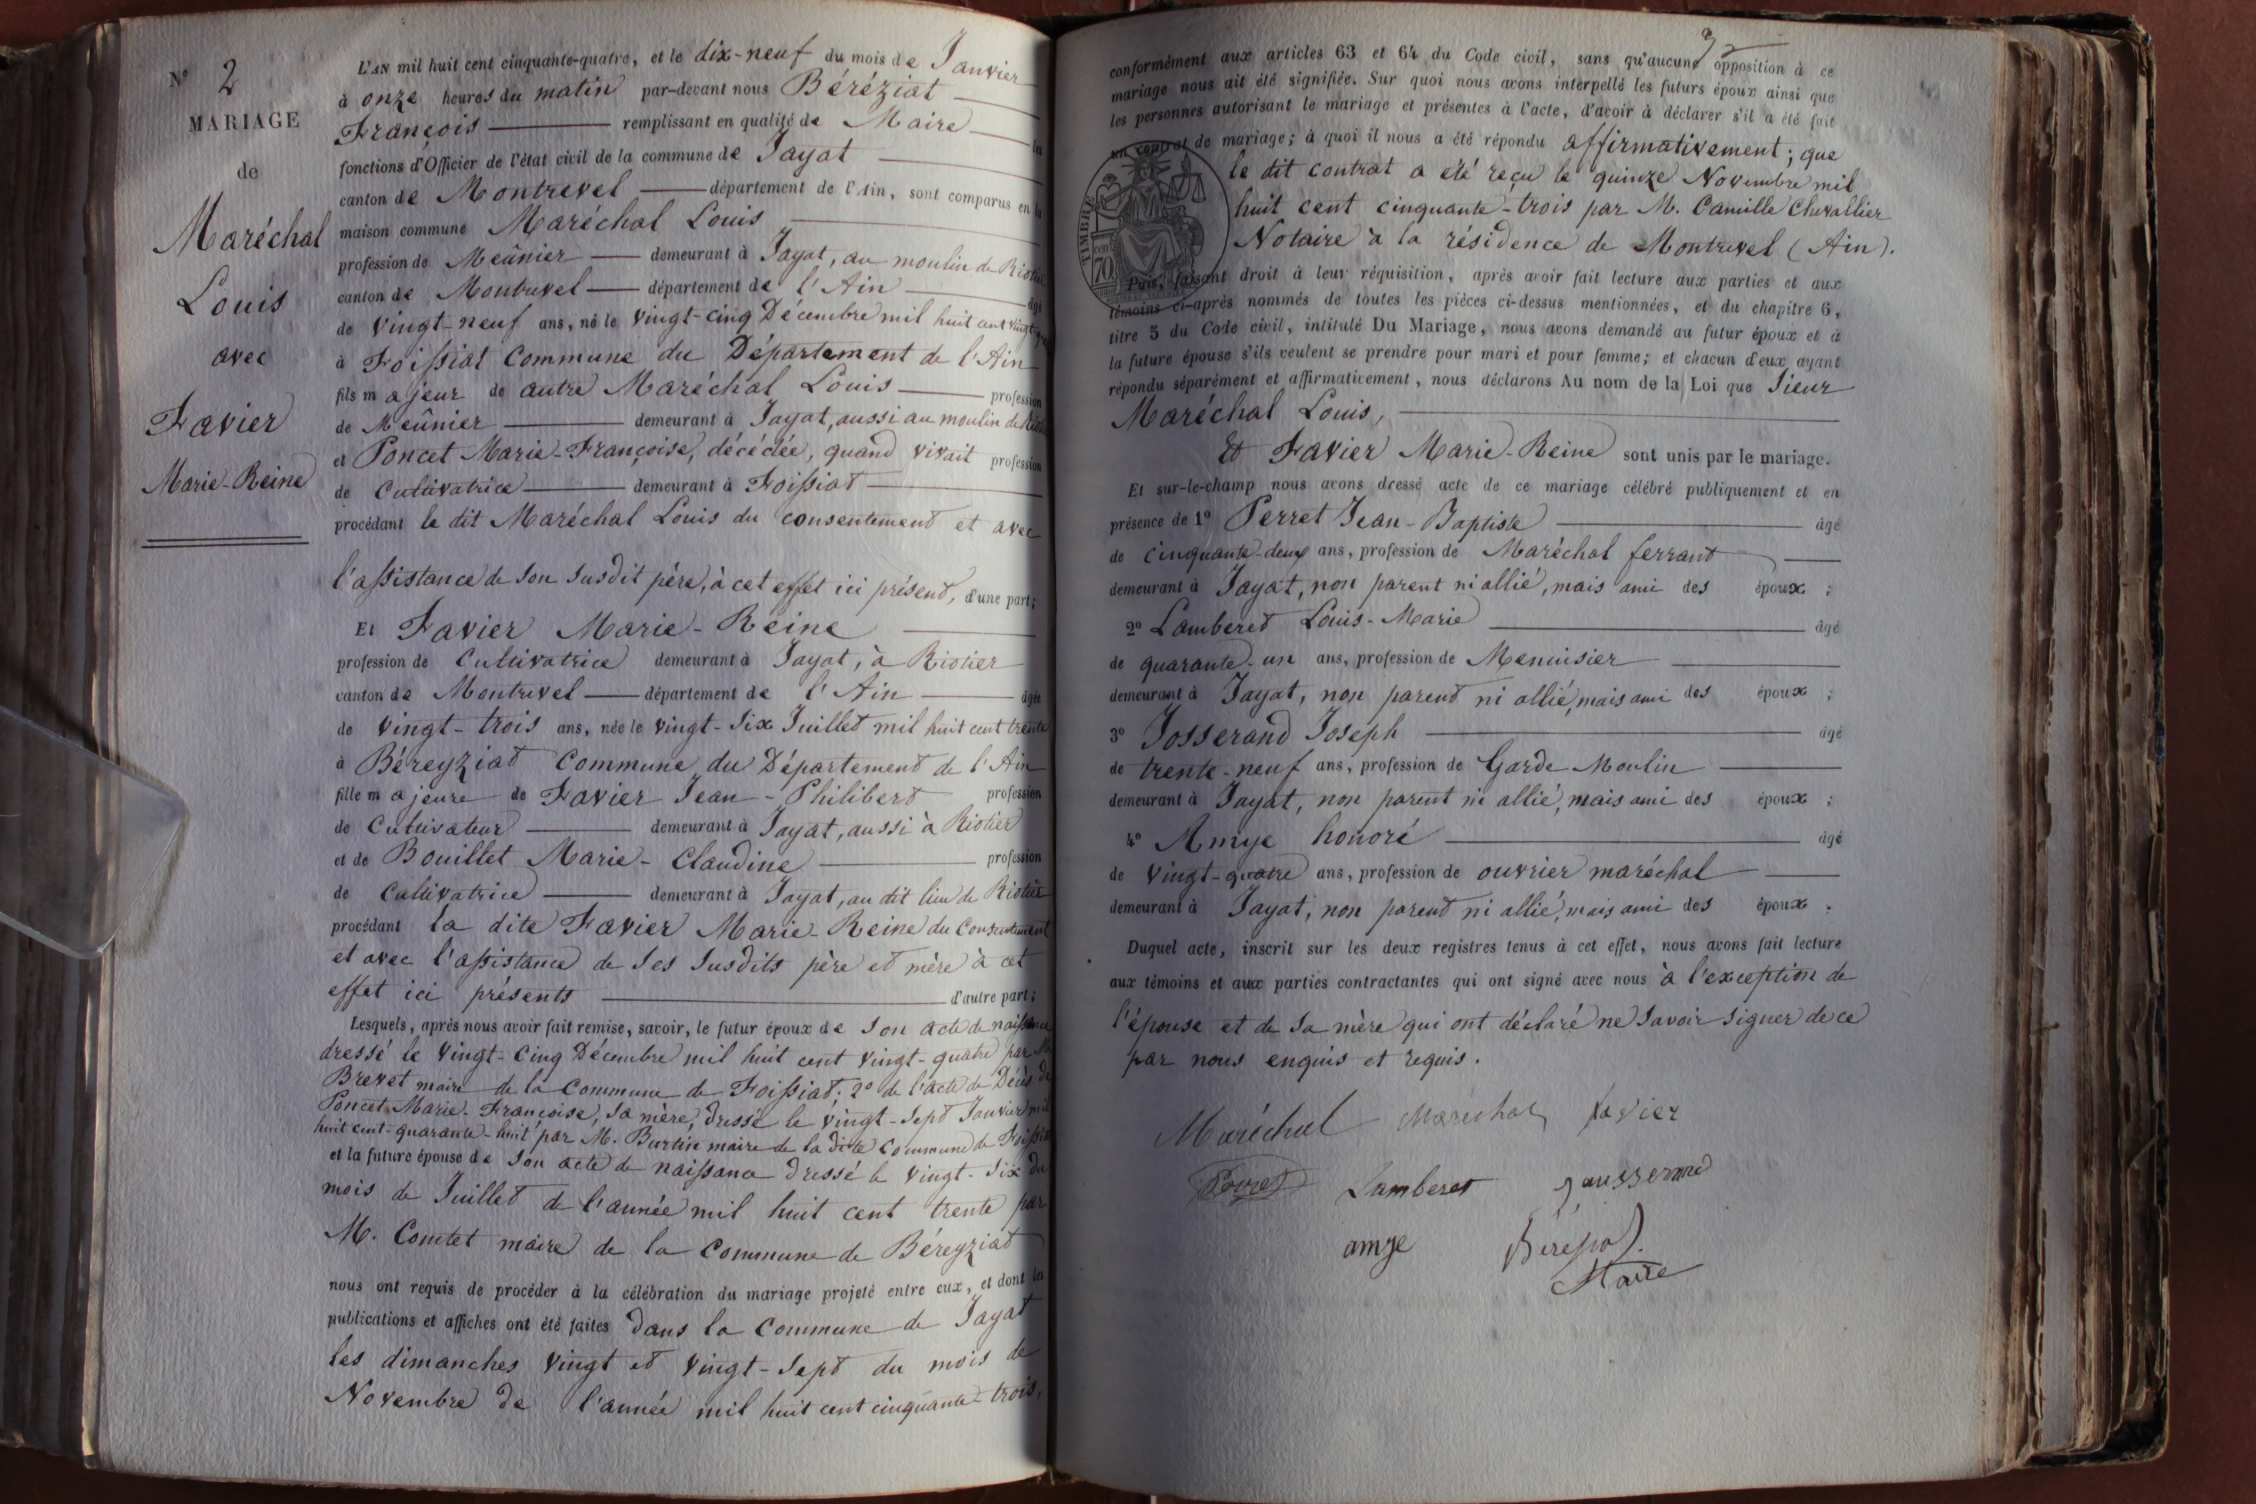 N° 2
MARIAGE
de
Maréchal
Louis
avec
Favier
Marie-Reine
L'AN mil huit cent cinquante-quatre, et le dix-neuf du mois de Janvier
à onze heures du matin par-devant nous Béréziat
François remplissant en qualité de Maire les
fonctions d'Officier de l'état civil de la commune de Jayat
canton de Montrevel département de l'Ain, sont comparus en la
maison commune Maréchal Louis
profession de Meûnier demeurant à Jayat, au moulin de Riotier
canton de Montrevel département de l'Ain âgé
de vingt-neuf ans, né le vingt-cinq Décembre mil huit cent vingt-quatre
à Foissiat Commune du Département de l'Ain
fils majeur de autre Maréchal Louis profession
de Meûnier demeurant à Jayat, aussi au moulin de Riotier
et Poncet Marie-Françoise, décédée, quand vivait profession
de Cultivatrice demeurant à Foissiat
procédant le dit Maréchal Louis du consentement et avec
l'assistance de son susdit père, à cet effet ici présent, d'une part;
Et Favier Marie-Reine
profession de Cultivatrice demeurant à Jayat, à Riotier
canton de Montrevel département de l'Ain âgée
de vingt-trois ans, née le vingt-six Juillet mil huit cent trente
à Béreyziat Commune du Département de l'Ain
fille majeure de Favier Jean-Philibert profession
de Cultivateur demeurant à Jayat, aussi à Riotier
et de Bouillet Marie-Claudine profession
de Cultivatrice demeurant à Jayat, au dit lieu de Riotier
procédant la dite Favier Marie-Reine du Consentement
et avec l'assistance de ses susdits père et mère à cet
effet ici présents d'autre part;
Lesquels, après nous avoir fait remise, savoir, le futur époux de son acte de naissance
dressé le vingt-cinq Décembre mil huit cent vingt-quatre par M.
Brevet maire de la Commune de Foissiat; 2° de l'acte de Décès de
Poncet Marie-Françoise, sa mère, dressé le vingt-sept Janvier mil
huit cent-quarante-huit par M. Burtin maire de la dite Commune de Foissiat
et la future épouse de son acte de naissance dressé le vingt-six du
mois de Juillet de l'année mil huit cent trente par
M. Comtet maire de la Commune de Béreyziat
nous ont requis de procéder à la célébration du mariage projeté entre eux, et dont les
publications et affiches ont été faites dans la Commune de Jayat
les dimanches vingt et vingt-sept du mois de
Novembre de l'année mil huit cent cinquante-trois,
conformément aux articles 63 et 64 du Code civil, sans qu'aucune opposition à ce
mariage nous ait été signifiée. Sur quoi nous avons interpellé les futurs époux ainsi que
les personnes autorisant le mariage et présentes à l'acte, d'avoir à déclarer s'il a été fait
un contrat de mariage; à quoi il nous a été répondu affirmativement; que
le dit contrat a été reçu le quinze Novembre mil
huit cent cinquante-trois par M. Camille Chevallier
Notaire à la résidence de Montrevel (Ain).
TIMBRE
cen
70
Puis, faisant droit à leur réquisition, après avoir fait lecture aux parties et aux
témoins ci-après nommés de toutes les pièces ci-dessus mentionnées, et du chapitre 6,
titre 5 du Code civil, intitulé Du Mariage, nous avons demandé au futur époux et à
la future épouse s'ils veulent se prendre pour mari et pour femme; et chacun d'eux ayant
répondu séparément et affirmativement, nous déclarons Au nom de la Loi que Sieur
Maréchal Louis,
Et Favier Marie-Reine sont unis par le mariage.
Et sur-le-champ nous avons dressé acte de ce mariage célébré publiquement et en
présence de 1° Perret Jean-Baptiste âgé
de cinquante-deux ans, profession de Maréchal ferrant
demeurant à Jayat, non parent ni allié, mais ami des époux ;
2° Lamberet Louis-Marie âgé
de quarante-un ans, profession de Menuisier
demeurant à Jayat, non parent ni allié, mais ami des époux ;
3° Josserand Joseph âgé
de trente-neuf ans, profession de Garde Moulin
demeurant à Jayat, non parent ni allié, mais ami des époux ;
4° Amye honoré âgé
de vingt-quatre ans, profession de ouvrier maréchal
demeurant à Jayat, non parent ni allié, mais ami des époux .
Duquel acte, inscrit sur les deux registres tenus à cet effet, nous avons fait lecture
aux témoins et aux parties contractantes qui ont signé avec nous à l'exception de
l'épouse et de sa mère qui ont déclaré ne savoir signer de ce
par nous enquis et requis.
Maréchal Marechal favier
Perret Lamberet Jausserand
amye Béréziat
Maire